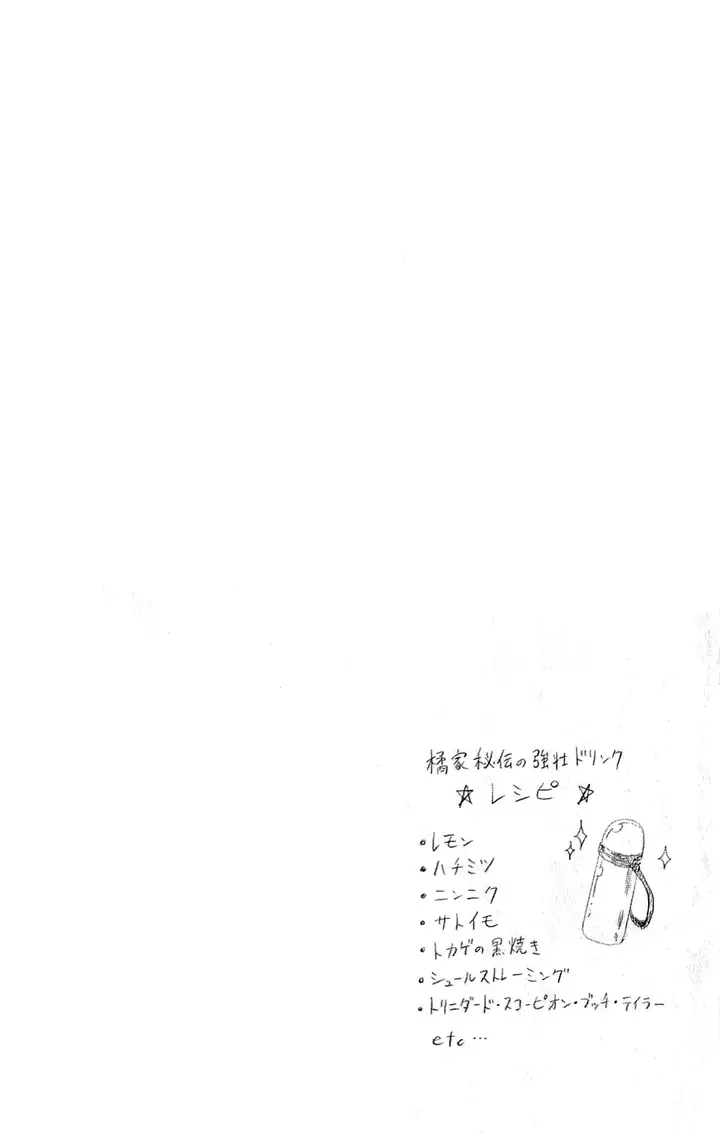 橘家秘伝の強壮ドリンク
☆レシピ☆
・レモン
・ハチミツ
・ニンニク
・サトイモ
・トカゲの黒焼き
・シュールストレーミング
・トリニダード・スコーピオン・ブッチ・テイラー
etc…